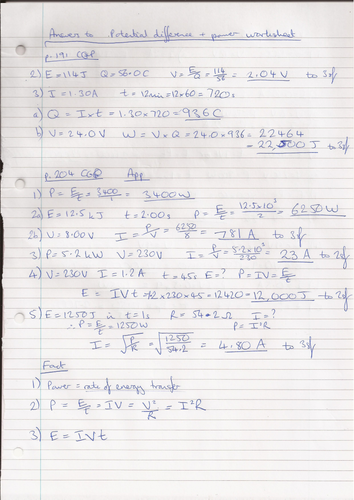 Answers to Potential difference + power worksheet
p.191 CGP
2) E = 114 J Q = 56.0 C V = E/Q = 114/56 = 2.04 V to 3sf
3) I = 1.30A t = 12min = 12×60 = 720s
a) Q = I×t = 1.30×720 = 936 C
b) V = 24.0V W = V×Q = 24.0×936 = 22464
= 22,500 J to 3sf
p.204 CGP App
1) P = E/t = 3400/1 = 3400W
2a) E = 12.5 kJ t = 2.00s P = E/t = 12.5×10³/2 = 6250W
2b) V = 8.00V I = P/V = 6250/8 = 781 A to 3sf
3) P = 5.2 kW V = 230V I = P/V = 5.2×10³/230 = 23 A to 2sf
4) V = 230V I = 1.2A t = 45s E = ? P = IV = E/t
E = IVt = 1.2×230×45 = 12420 = 12,000 J to 2sf
5) E = 1250J in t = 1s R = 54.2 Ω I = ?
∴ P = E/t = 1250W P = I²R
I = √P/R = √1250/54.2 = 4.80 A to 3sf
Fact
1) Power = rate of energy transfer
2) P = E/t = IV = V²/R = I²R
3) E = IVt